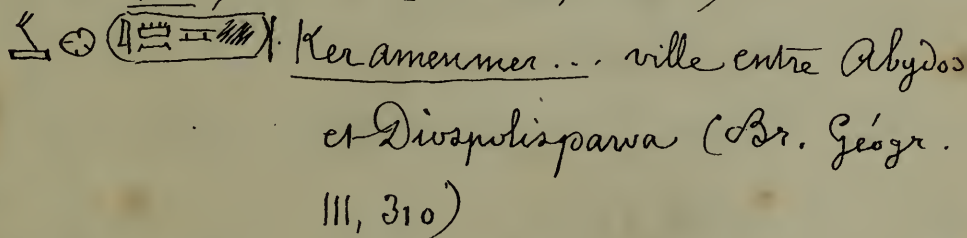 Ker amenmer... ville entre Abydos
et Diospolisparva (Br. Géogr.
III, 310)